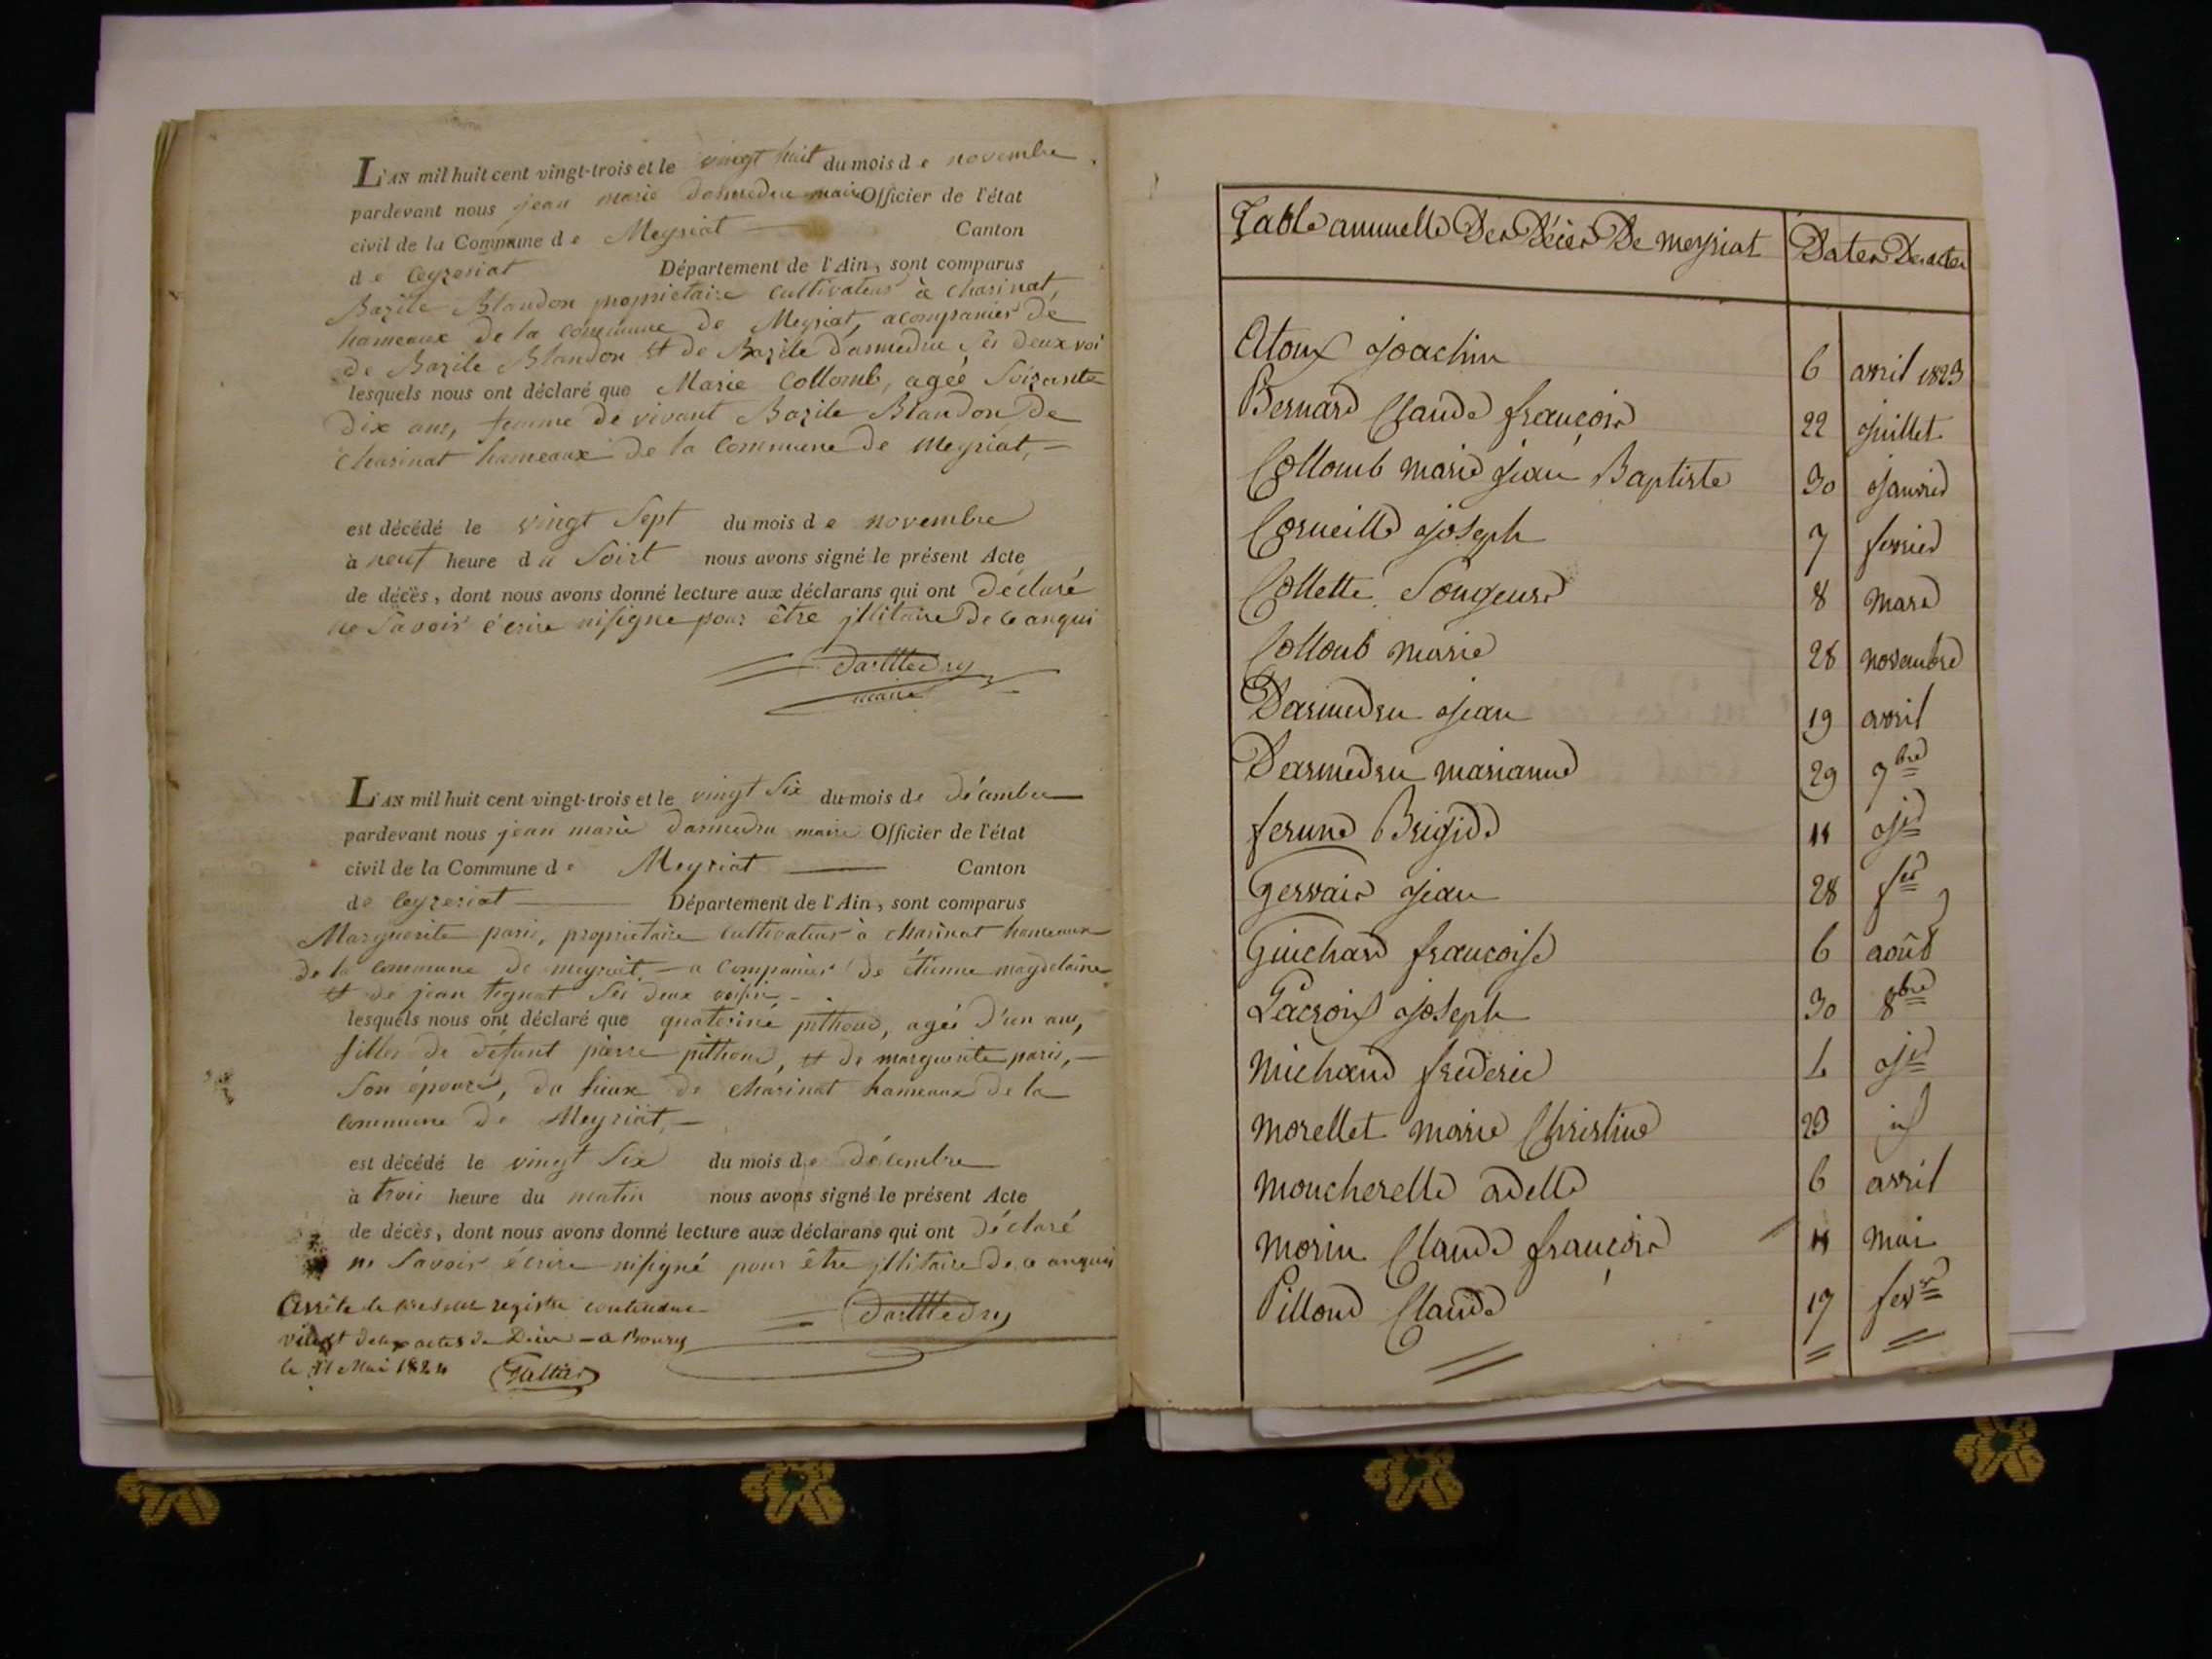 L'AN mil huit cent vingt-trois et le vingt huit du mois de novembre
pardevant nous jean marie darmedru maire Officier de l'état
civil de la Commune de Meyriat Canton
de Ceyzeriat Département de l'Ain, sont comparus
Bazile Blandon propriétaire cultivateur à Charinat,
hameaux de la commune de Meyriat, acompanier de
de Bazile Blandon et de Bazile darmedru ses deux voi
lesquels nous ont déclaré que Marie Collomb, agée soixante
dix ans, femme de vivant Bazile Blandon de
Charinat hameaux de la Commune de Meyriat, —
est décédé le vingt Sept du mois de novembre
à neuf heure du Soirt nous avons signé le présent Acte
de décès, dont nous avons donné lecture aux déclarans qui ont Déclaré
ne Savoir écrire ni signe pour être illitaire de ce anquis
Darmedru
maire
L'AN mil huit cent vingt-trois et le vingt Six du mois de décembre
pardevant nous jean marie darmedru maire Officier de l'état
civil de la Commune de Meyriat Canton
de Ceyzeriat Département de l'Ain, sont comparus
Marguerite paris, propriétaire cultivateur à charinat hameaux
de la commune de meyriat, — a companier de étienne magdelaine
et de jean tignat Ses deux voisin —
lesquels nous ont déclaré que pithoud, agée d'un ans,
filles de défunt pierre pithoud, et de marguerite paris, —
Son épouse, du lieux de Charinat hameaux de la
commune de Meyriat, —
est décédé le vingt Six du mois de décembre
à trois heure du matin nous avons signé le présent Acte
de décès, dont nous avons donné lecture aux déclarans qui ont Déclaré
ne Savoir écrire ni signé pour être illitaire de ce anquis
Arrêté le présent registre contenant
vingt deux actes de Décès — à Bourg
le 11 Mai 1824
Darmedru
Table annuelle Des Décès De meyriat Dates Des actes
Atoux joachim 6 avril 1823
Bernard Claude françois 22 juillet
Collomb marie jean Baptiste 30 janvier
Corneille joseph 7 fevrier
Collette 8 mars
Collomb marie 28 novembre
Darmedru jean 19 avril
Darmedru marianne 29 9bre
ferune Brigide 11 jer
Gervais jean 28 fer
Guichard françoise 6 août
Lacroix joseph 30 8bre
Michaud frederic jer
Morellet marie Christine 23 id
Moucherelle adelle 6 avril
Morin Claude françois 11 mai
Pilloud Claude 17 fevr